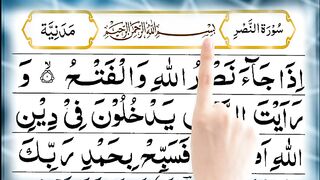 سُوْرَةُ النَّصْرِ
بِسْمِ اللهِ الرَّحْمٰنِ الرَّحِيْمِ
مَدَنِيَّة
اِذَا جَآءَ نَصْرُ اللهِ وَالْفَتْحُ ۙ۝ وَ
رَاَيْتَ يَدْخُلُوْنَ فِيْ دِيْنِ
اللهِ فَسَبِّحْ بِحَمْدِ رَبِّكَ